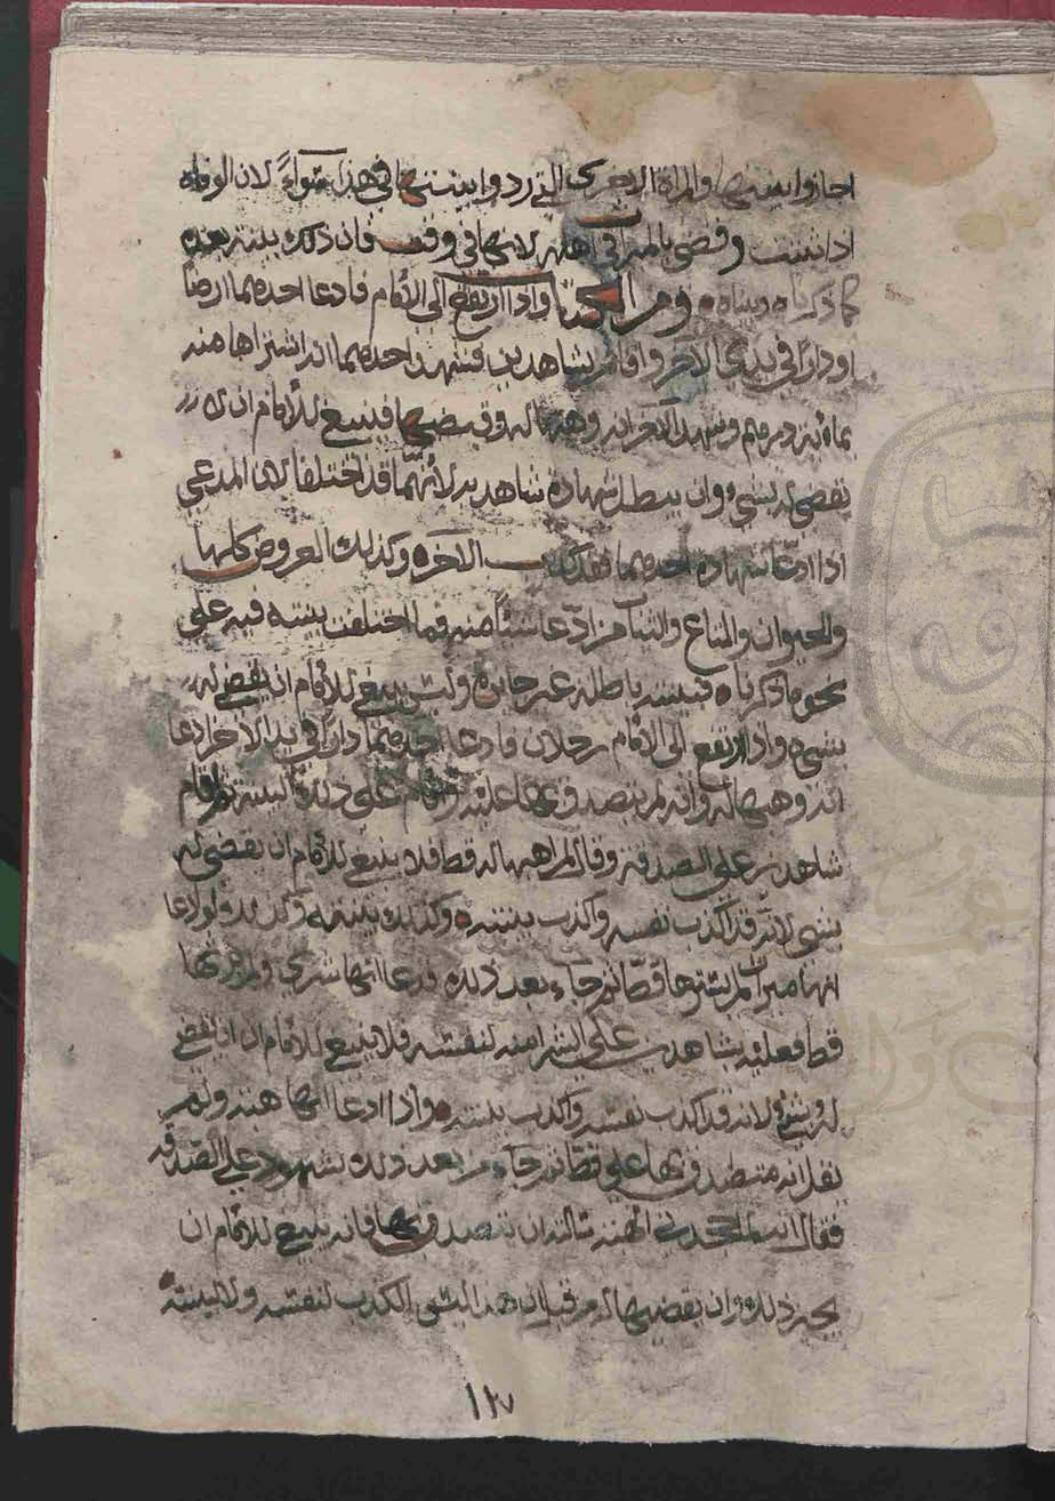 اجازوا بينتها والمراة الاخرى التي ردوا بينتها في هذا سواءً لان الوفاه
اذا ثبتت وقضي بالميراث لاهله لانها في وقت فان ذلك بينته بعده
كما ذكرناه وبيناه ومن الجدنا واذا ارتفع الى الأمام فادعا احدهما ارضًا
او دارًا في يدي الاخر واقام بشاهدين فشهد احدهما انه اشتراها منه
بمائة درهم وشهد الاخر انه وهبها له وقبضها فينبغ للأمام ان لا
يقضي له بشيء وان يبطل شهادة شاهديه لأنهما قد اختلفا لان المدعي
اذا ادعا شهادة احدهما فقد كذب الاخره وكذلك العروض كلها
والحيوان والمتاع والثياب من ادّعا شيئًا منه فما اختلفت بينته فيه على
نحو ما ذكرناه فبينته باطلة غير جايزة وليس ينبغ للأمام ان يقضي له
بشيء واذا ارتفع الى الأمام رجلان فادعا احدهما دارًا في يد الاخر ادعا
انه وهبها له وانه لم يتصدق بها عليه على ذلك البينة ثم اقام
شاهدين على الصدقه وقال لم اهبها له قط فلا ينبغ للأمام ان يقضي له
بشي لانه قد اكذب نفسه واكذب بينته وكذلك بينته وكذلك لو ادعا
انها ميراث لم يشترها قط ثم جاء بعد ذلك فدعا انها شرى ولم يرثها
قط بشاهدين على الشرا منه لنفسه فلا ينبغ للأمام ان يقضي
له بشيء لانه قد اكذب نفسه واكذب بينته واذا ادعا انها هبه ولم
يقل انه متصدق بها علي قط ثم جاء من بعد ذلك بشهود على الصدقه
فقال انه لما جحدني الهبه سالته ان يتصدق بها فانه ينبغ للأمام ان
يجيز ذلك وان يقضي بها له من قبل ان هذا ليس الكذب لنفسه ولا لبينته
١٢٧